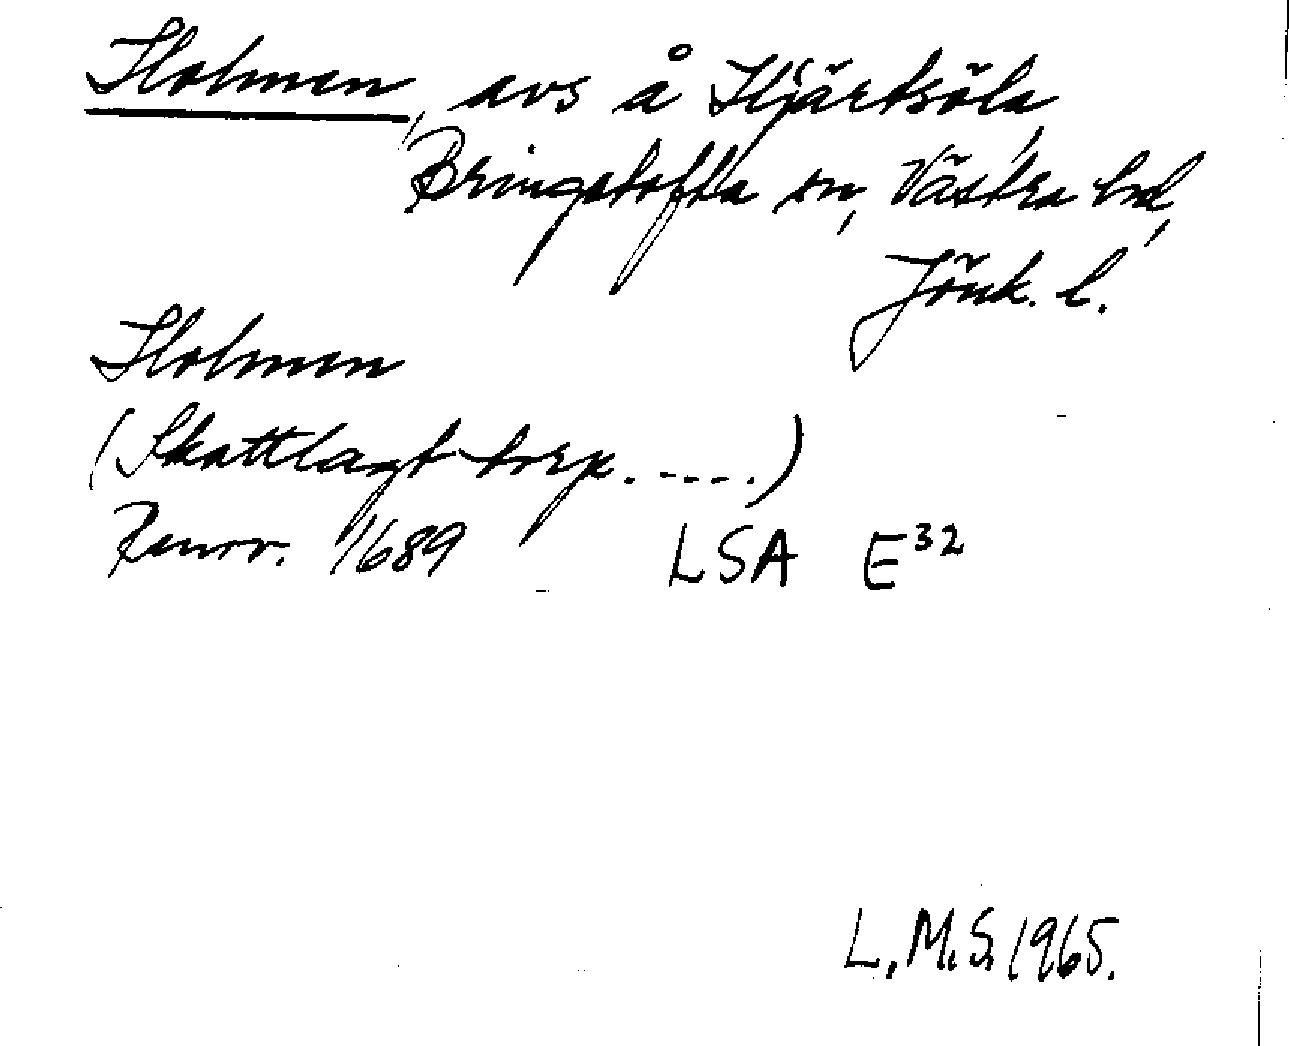 Holmen, avs å Hjärtsöla,
Bringetofta sn, Västra hd,
Jönk. l.
Holmen
(Skattlagt torp. ----.)
Renov. 1689 LSA E32
L.M.S. 1965.